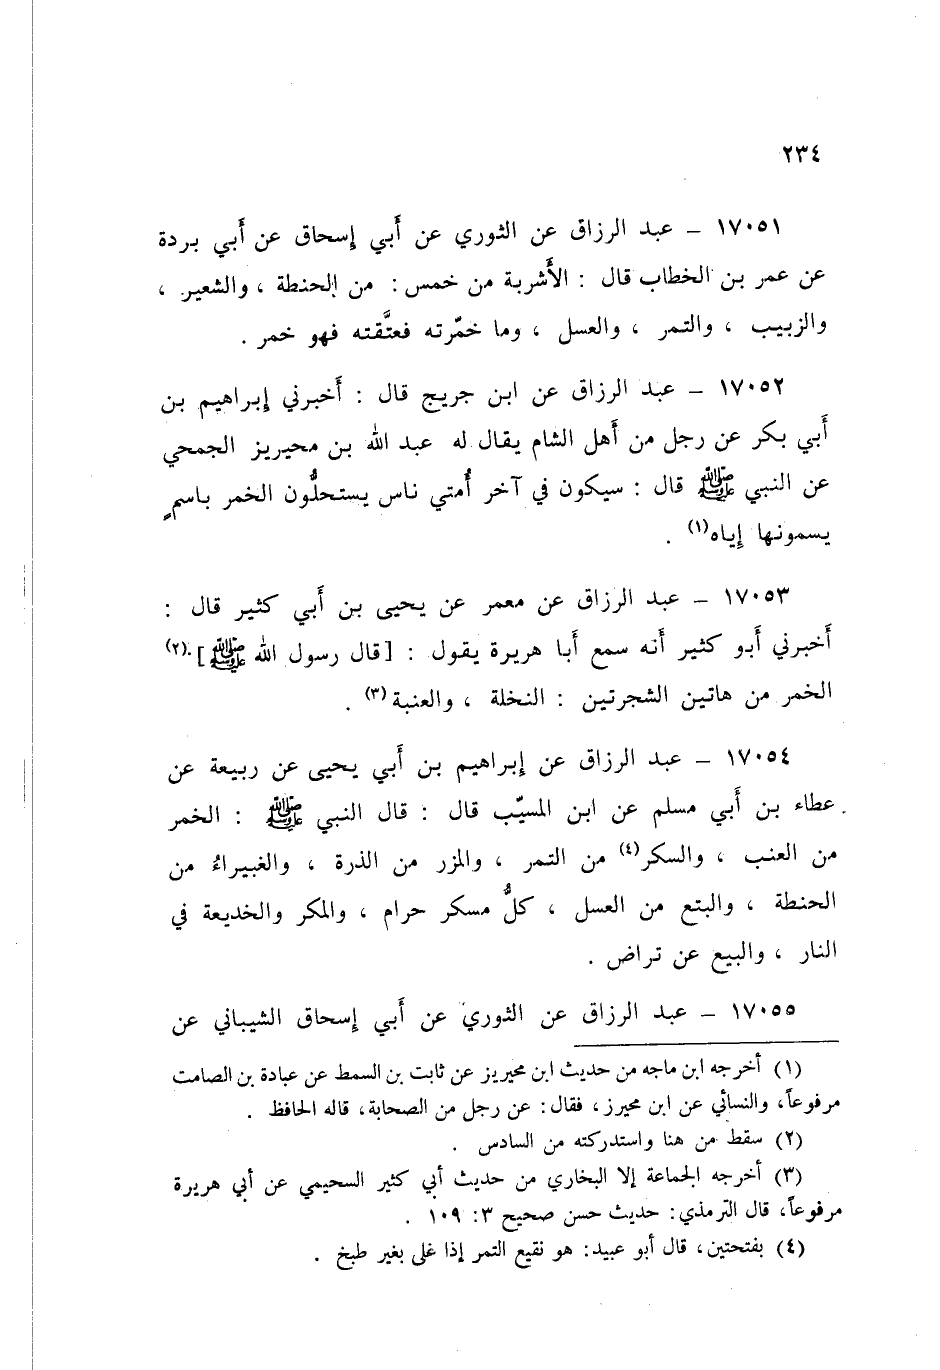 ٢٣٤
١٧٠٥١ – عبد الرزاق عن الثوري عن أَبي إسحاق عن أَبي بردة
عن عمر بن الخطاب قال : الأَشربة من خمس : من الحنطة ، والشعير ،
والزبيب ، والتمر ، والعسل ، وما خمّرته فعتَّقته فهو خمر .
١٧٠٥٢ – عبد الرزاق عن ابن جريج قال : أَخبرني إبراهيم بن
أَبي بكر عن رجل من أَهل الشام يقال له عبد الله بن محيريز الجمحي
عن النبي ﷺ قال : سيكون في آخر أُمتي ناس يستحلُّون الخمر باسمٍ
يسمونها إياه(١) .
١٧٠٥٣ – عبد الرزاق عن معمر عن يحيى بن أَبي كثير قال :
أَخبرني أَبو كثير أنه سمع أَبا هريرة يقول : [قال رسول الله ﷺ].(٢)
الخمر من هاتين الشجرتين : النخلة ، والعنبة(٣) .
١٧٠٥٤ – عبد الرزاق عن إبراهيم بن أَبي يحيى عن ربيعة عن
عطاء بن أَبي مسلم عن ابن المسيّب قال : قال النبي ﷺ : الخمر
من العنب ، والسكر(٤) من التمر ، والمزر من الذرة ، والغبيراءُ من
الحنطة ، والبتع من العسل ، كلُّ مسكر حرام ، والمكر والخديعة في
النار ، والبيع عن تراض .
١٧٠٥٥ – عبد الرزاق عن الثوري عن أَبي إسحاق الشيباني عن
(١) أخرجه ابن ماجه من حديث ابن محيريز عن ثابت بن السمط عن عبادة بن الصامت
مرفوعاً، والنسائي عن ابن محيرز، فقال: عن رجل من الصحابة، قاله الحافظ .
(٢) سقط من هنا واستدركته من السادس .
(٣) أخرجه الجماعة إلا البخاري من حديث أبي كثير السحيمي عن أبي هريرة
مرفوعاً، قال الترمذي: حديث حسن صحيح ٣: ١٠٩ .
(٤) بفتحتين، قال أبو عبيد: هو نقيع التمر إذا غلى بغير طبخ .